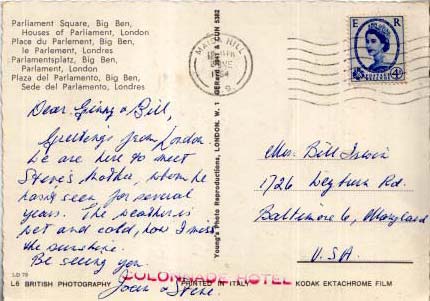 Parliament Square, Big Ben,
Houses of Parliament, London
Place du Parlement, Big Ben,
le Parlement, Londres
Parlamentsplatz, Big Ben,
Parlament, London
Plaza del Parlamento, Big Ben,
Sede del Parlamento, Londres
Dear Ginny & Bill,
Greetings from London.
We are here to meet
Steve's mother, whom he
hasn't seen for several
years. The weather is
wet and cold, how I miss
the sunshine.
Be seeing you
Joan & Steve.
LD 79
L6 BRITISH PHOTOGRAPHY
PRINTED IN ITALY
KODAK EKTACHROME FILM
COLONNADE HOTEL
Young's Photo Reproductions, LONDON. W. 1
HILL
JNE
9
E R
POSTAGE
REVENUE
4D
Mrs. Bill Irwin
1726 Leyburn Rd.
Baltimore 6, Maryland
U.S.A.